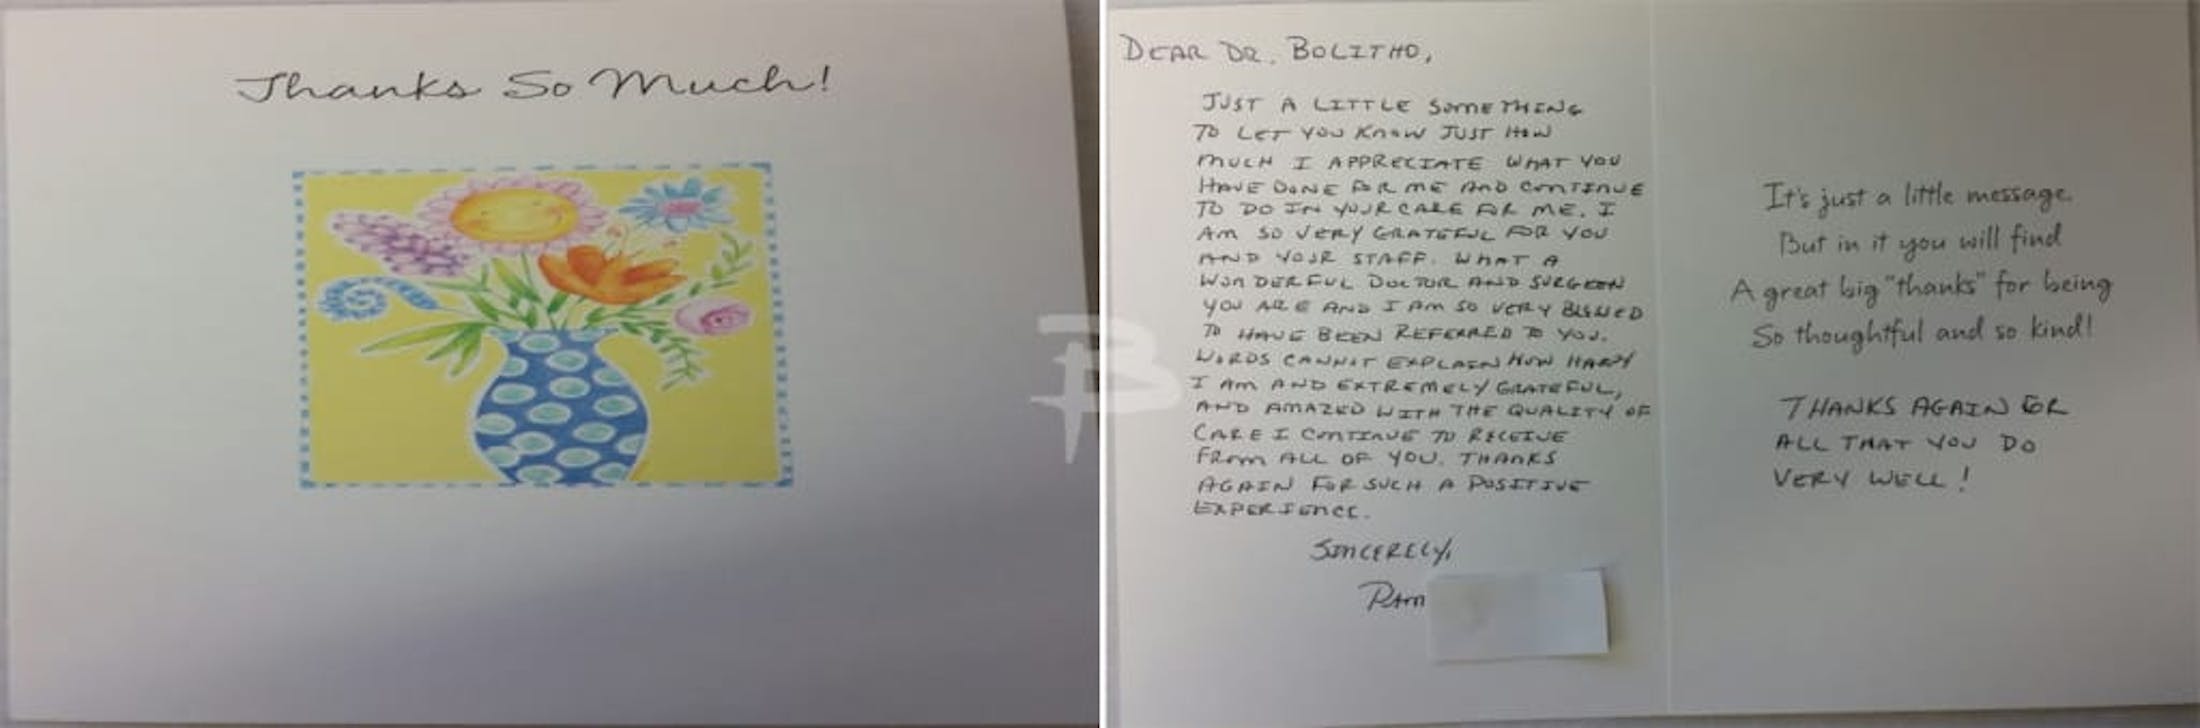 Thanks So Much!
DEAR DR. BOLITHO,
JUST A LITTLE SOMETHING
TO LET YOU KNOW JUST HOW
MUCH I APPRECIATE WHAT YOU
HAVE DONE FOR ME AND CONTINUE
TO DO IN YOUR CARE FOR ME. I
AM SO VERY GRATEFUL FOR YOU
AND YOUR STAFF. WHAT A
WONDERFUL DOCTOR AND SURGEON
YOU ARE AND I AM SO VERY BLESSED
TO HAVE BEEN REFERRED TO YOU.
WORDS CANNOT EXPLAIN HOW HAPPY
I AM AND EXTREMELY GRATEFUL,
AND AMAZED WITH THE QUALITY OF
CARE I CONTINUE TO RECEIVE
FROM ALL OF YOU. THANKS
AGAIN FOR SUCH A POSITIVE
EXPERIENCE.
SINCERELY,
PAM
It's just a little message.
But in it you will find
A great big "thanks" for being
So thoughtful and so kind!
THANKS AGAIN FOR
ALL THAT YOU DO
VERY WELL!
B